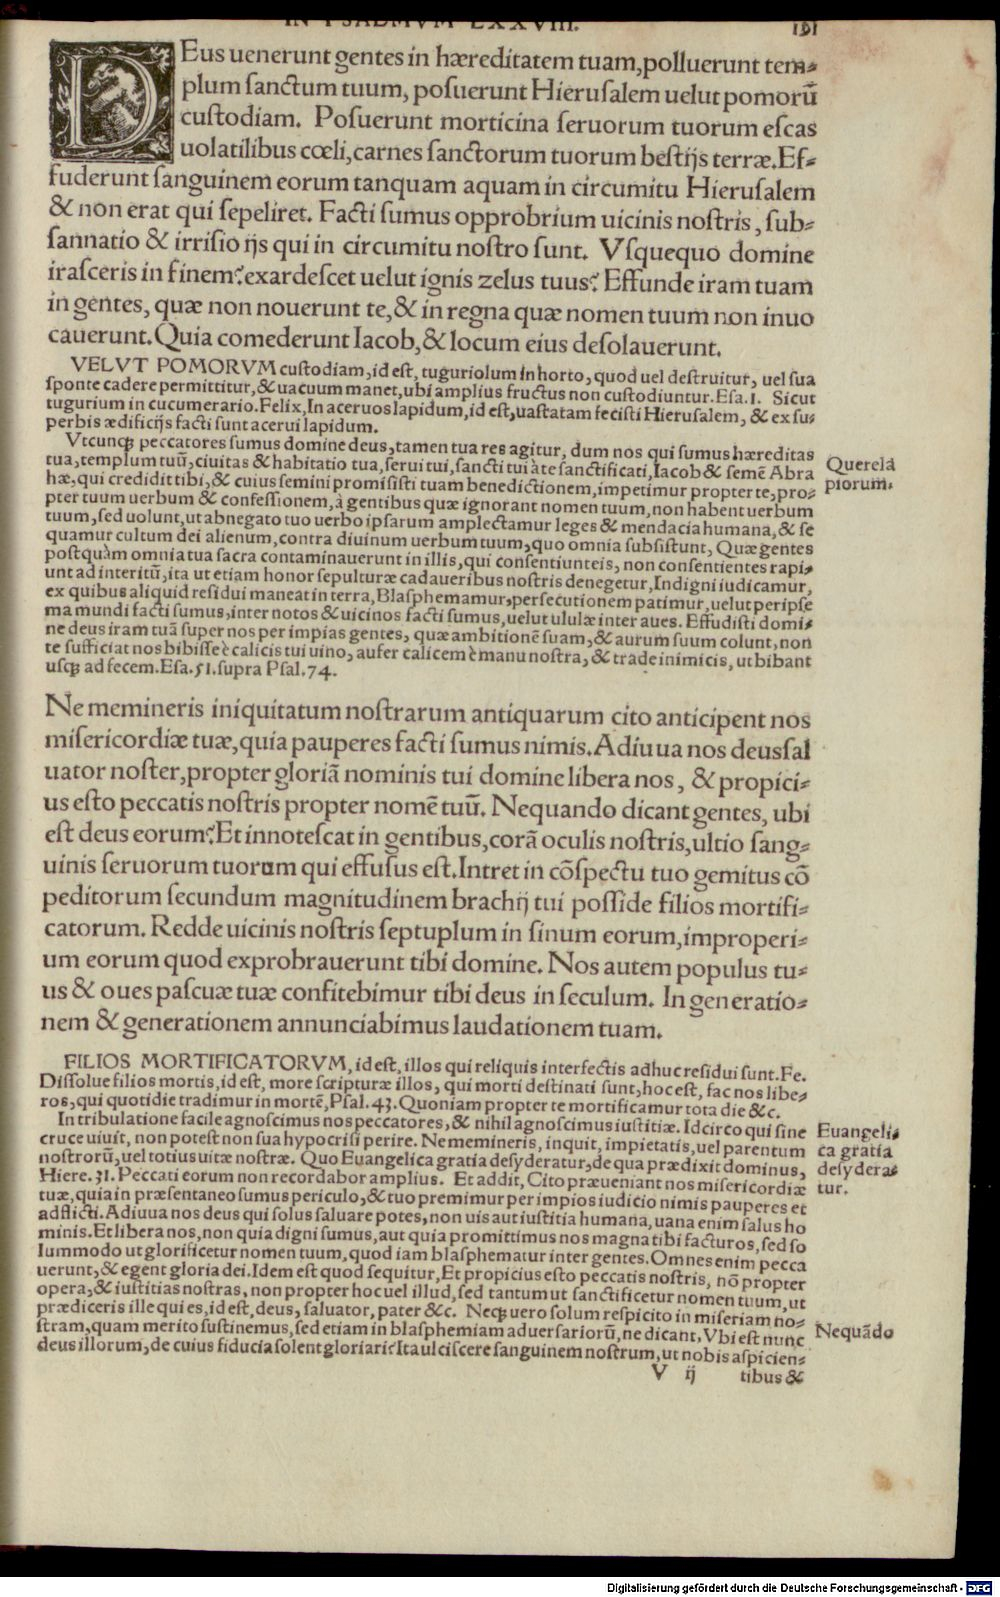 IN PSALMVM LXXVIII. 151
DEus uenerunt gentes in hæreditatem tuam, polluerunt tem⸗
plum ſanctum tuum, poſuerunt Hieruſalem uelut pomorū
cuſtodiam. Poſuerunt morticina ſeruorum tuorum eſcas
uolatilibus cœli, carnes ſanctorum tuorum beſtijs terræ. Ef⸗
fuderunt ſanguinem eorum tanquam aquam in circumitu Hieruſalem
& non erat qui ſepeliret. Facti ſumus opprobrium uicinis noſtris, ſub⸗
ſannatio & irriſio ijs qui in circumitu noſtro ſunt. Vſquequo domine
iraſceris in finem? exardeſcet uelut ignis zelus tuus? Effunde iram tuam
in gentes, quæ non nouerunt te, & in regna quæ nomen tuum non inuo
cauerunt. Quia comederunt Iacob, & locum eius deſolauerunt.
VELVT POMORVM cuſtodiam, id eſt, tuguriolum in horto, quod uel deſtruitur, uel ſua
ſponte cadere permittitur, & uacuum manet, ubi amplius fructus non cuſtodiuntur. Eſa. 1. Sicut
tugurium in cucumerario. Felix, In aceruos lapidum, id eſt, uaſtatam feciſti Hieruſalem, & ex ſu⸗
perbis ædificijs facti ſunt acerui lapidum.
Vtcunq; peccatores ſumus domine deus, tamen tua res agitur, dum nos qui ſumus hæreditas
tua, templum tuū, ciuitas & habitatio tua, ſerui tui, ſancti tui à te ſanctificati, Iacob & ſemē Abra
hæ, qui credidit tibi, & cuius ſemini promiſiſti tuam benedictionem, impetimur propter te, pro⸗
pter tuum uerbum & confeſſionem, à gentibus quæ ignorant nomen tuum, non habent uerbum
tuum, ſed uolunt, ut abnegato tuo uerbo ipſarum amplectamur leges & mendacia humana, & ſe
quamur cultum dei alienum, contra diuinum uerbum tuum, quo omnia ſubſiſtunt, Quæ gentes
poſtquàm omnia tua ſacra contaminauerunt in illis, qui conſentiunt eis, non conſentientes rapi⸗
unt ad interitū, ita ut etiam honor ſepulturæ cadaueribus noſtris denegetur, Indigni iudicamur,
ex quibus aliquid reſidui maneat in terra, Blaſphemamur, perſecutionem patimur, uelut peripſe
ma mundi facti ſumus, inter notos & uicinos facti ſumus, uelut ululæ inter aues. Effudiſti domi⸗
ne deus iram tuā ſuper nos per impias gentes, quæ ambitionē ſuam, & aurum ſuum colunt, non
te ſufficiat nos bibiſſe è calicis tui uino, aufer calicem è manu noſtra, & trade inimicis, ut bibant
uſq; ad fecem. Eſa. 51. ſupra Pſal. 74.
Querela
piorum.
Ne memineris iniquitatum noſtrarum antiquarum cito anticipent nos
miſericordiæ tuæ, quia pauperes facti ſumus nimis. Adiuua nos deus ſal
uator noſter, propter gloriā nominis tui domine libera nos, & propici⸗
us eſto peccatis noſtris propter nomē tuū. Nequando dicant gentes, ubi
eſt deus eorum? Et innoteſcat in gentibus, corā oculis noſtris, ultio ſang⸗
uinis ſeruorum tuorum qui effuſus eſt. Intret in cōſpectu tuo gemitus cō
peditorum ſecundum magnitudinem brachij tui poſſide filios mortifi⸗
catorum. Redde uicinis noſtris ſeptuplum in ſinum eorum, improperi⸗
um eorum quod exprobrauerunt tibi domine. Nos autem populus tu⸗
us & oues paſcuæ tuæ confitebimur tibi deus in ſeculum. In generatio⸗
nem & generationem annunciabimus laudationem tuam.
FILIOS MORTIFICATORVM, id eſt, illos qui reliquis interfectis adhuc reſidui ſunt. Fe.
Diſſolue filios mortis, id eſt, more ſcripturæ illos, qui morti deſtinati ſunt, hoc eſt, fac nos libe⸗
ros, qui quotidie tradimur in mortē, Pſal. 43. Quoniam propter te mortificamur tota die &c.
In tribulatione facile agnoſcimus nos peccatores, & nihil agnoſcimus iuſtitiæ. Idcirco qui ſine
cruce uiuit, non poteſt non ſua hypocriſi perire. Ne memineris, inquit, impietatis, uel parentum
noſtrorū, uel totius uitæ noſtræ. Quo Euangelica gratia deſyderatur, de qua prædixit dominus,
Hiere. 31. Peccati eorum non recordabor amplius. Et addit, Cito præueniant nos miſericordiæ
tuæ, quia in præſentaneo ſumus periculo, & tuo premimur per impios iudicio nimis pauperes et
adflicti. Adiuua nos deus qui ſolus ſaluare potes, non uis aut iuſtitia humana, uana enim ſalus ho
minis. Et libera nos, non quia digni ſumus, aut quia promittimus nos magna tibi facturos, ſed ſo
lummodo ut glorificetur nomen tuum, quod iam blaſphematur inter gentes. Omnes enim pecca
uerunt, & egent gloria dei. Idem eſt quod ſequitur, Et propicius eſto peccatis noſtris, nō propter
opera, & iuſtitias noſtras, non propter hoc uel illud, ſed tantum ut ſanctificetur nomen tuum, ut
prædiceris ille qui es, id eſt, deus, ſaluator, pater &c. Neq; uero ſolum reſpicito in miſeriam no⸗
ſtram, quam merito ſuſtinemus, ſed etiam in blaſphemiam aduerſariorū, ne dicant, Vbi eſt nunc
deus illorum, de cuius fiducia ſolent gloriari? Ita ulciſcere ſanguinem noſtrum, ut nobis aſpicien⸗
Euangeli⸗
ca gratia
deſydera⸗
tur.
Nequādo
V ij tibus &
Digitalisierung gefördert durch die Deutsche Forschungsgemeinschaft - DFG